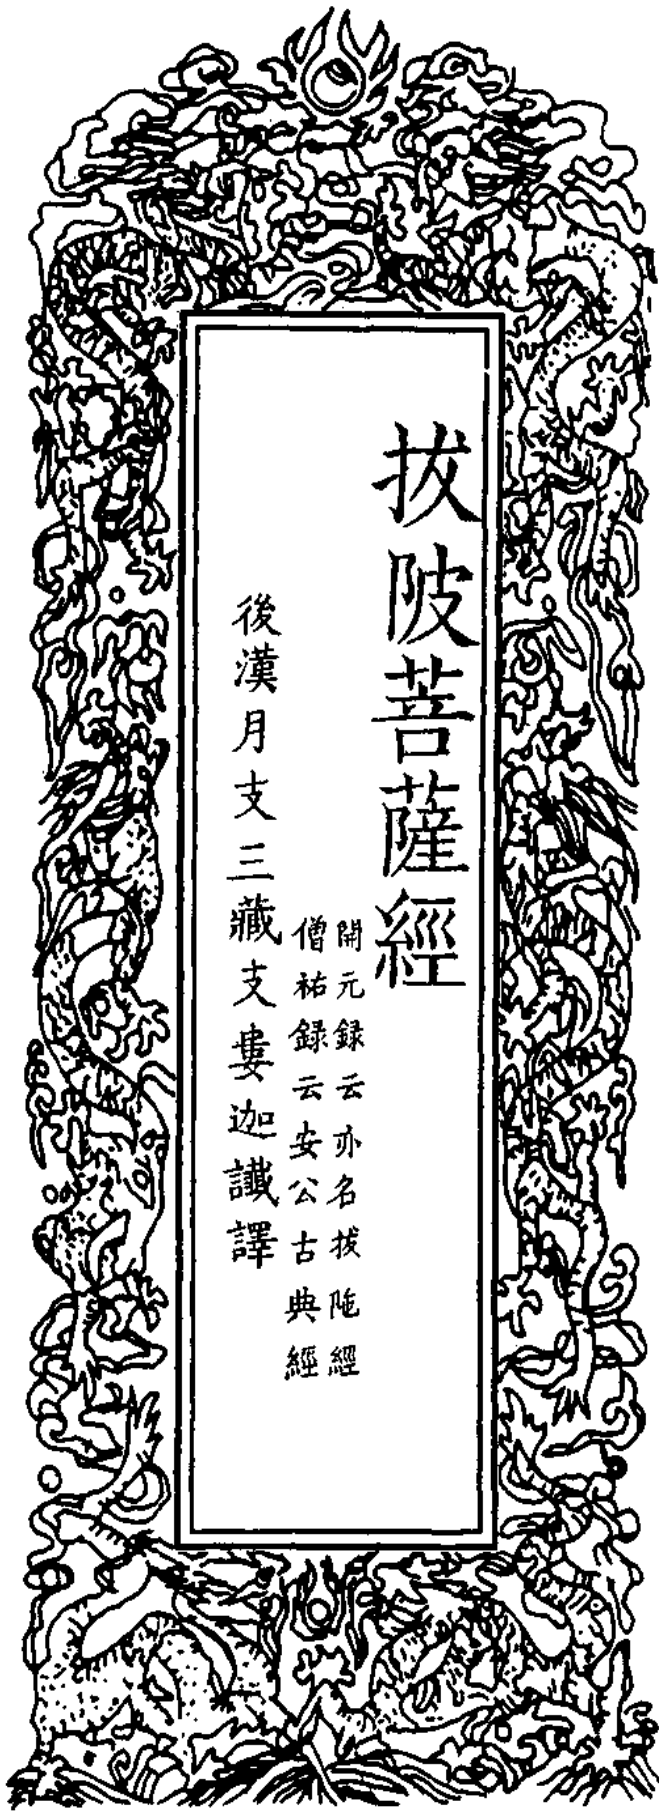 拔陂菩薩經
開元録云亦名拔陁經
僧祐録云安公古典經
後漢月支三藏支婁迦讖譯